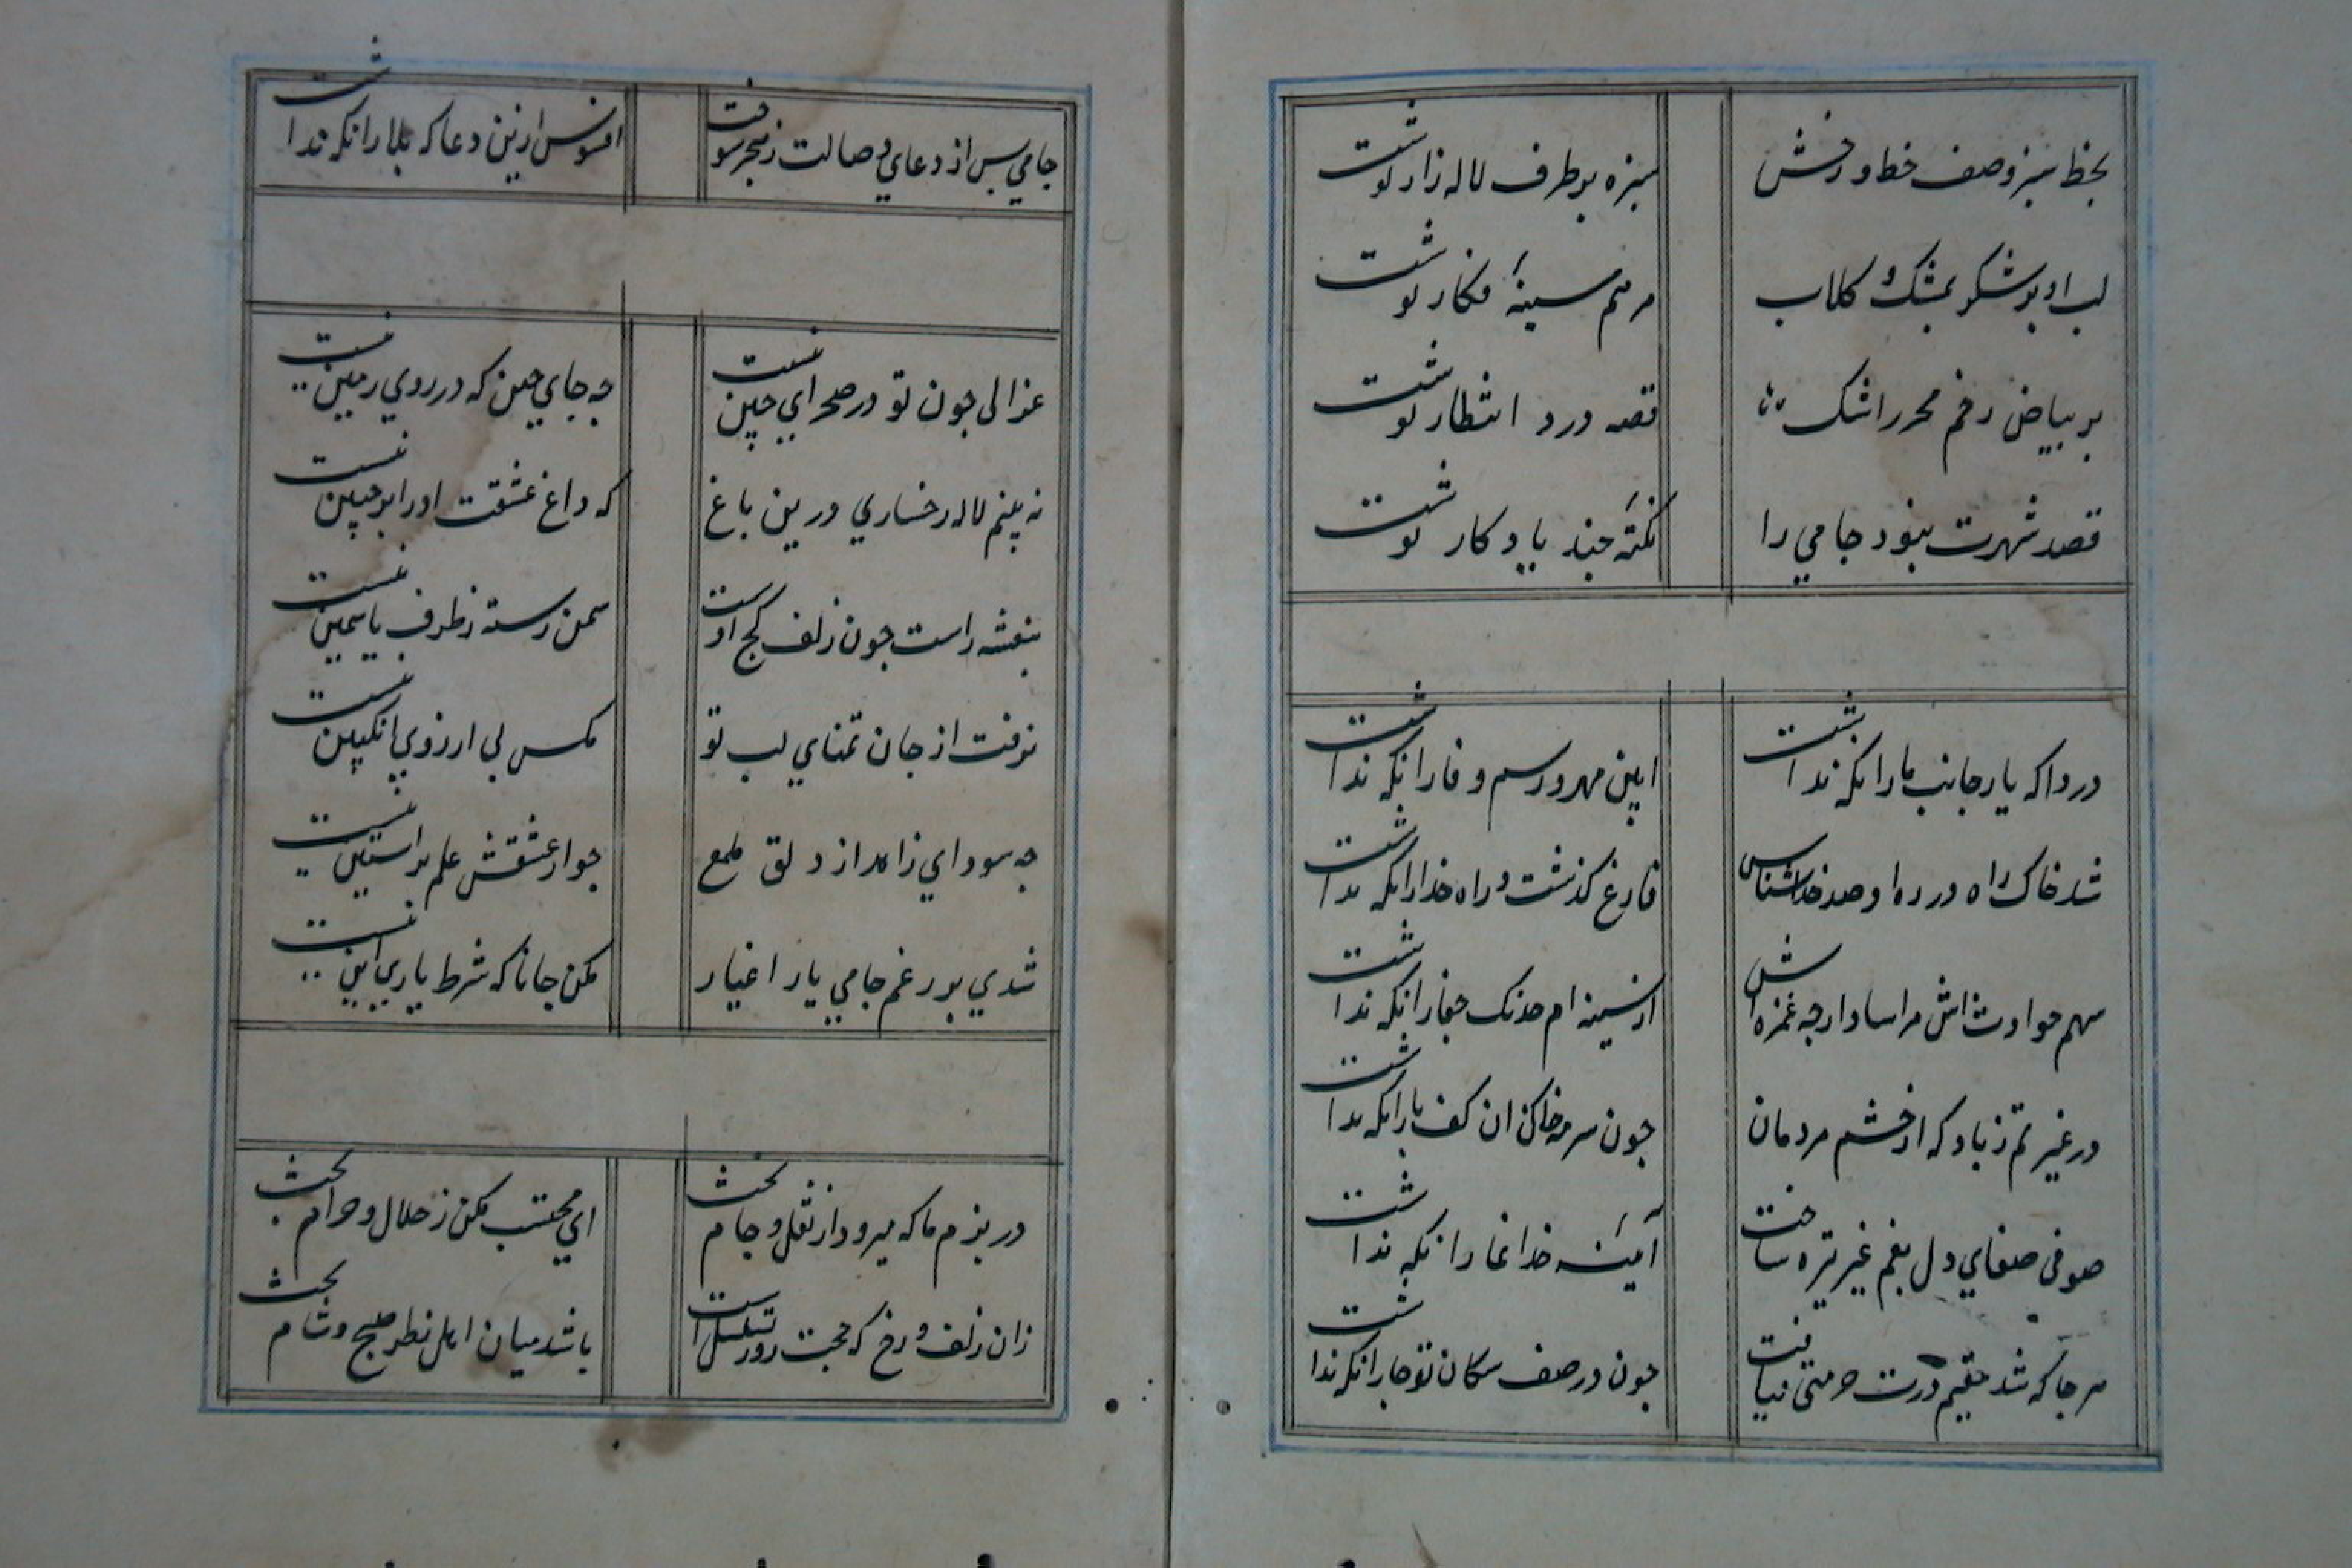 بخط سبز وصف خط و رخش
سبزه بر طرف لاله زار نوشت
لب او بر شکر بمشک و کلاب
مرهم سینهٔ فکار نوشت
بر بیاض رخم محرر اشک
قصه درد انتظار نوشت
قصد شهرت نبود جامی را
نکتهٔ جند یادکار نوشت
دردا که یار جانب ما را نکه نداشت
ایین مهر و رسم وفا را نکه نداشت
شد خاک راه در ره او صد خداشناس
فارغ کذشت و راه خدا را نکه نداشت
سهم حوادث اش مرساد ارجه غمزه اش
از سینه ام خدنک جفا را نکه نداشت
در غیرتم ز باد که از جشم مردمان
جون سرمه خاک ان کف پا را نکه نداشت
صوفی صفای دل بغم غیر تیره ساخت
آیینهٔ خدا نما را نکه نداشت
هر جا که شد مقیم درت حرمتی نیافت
جون در صف سکان تو جا را نکه نداشت
جامی بس از دعای وصالت ز هجر سوخت
افسوس ازین دعا که بلا را نکه نداشت
غزالی جون تو در صحرای جین نیست
جه جای جین که در روی زمین نیست
نه بینم لاله رخساری درین باغ
که داغ عشقت او را بر جبین نیست
بنفشه راست جون زلف کج اوست
سمن رسته ز طرف یاسمین نیست
نرفت از جان تمنای لب تو
مکس بی ارزوی انکبین نیست
جه سود ای زاهد از دلق ملمع
جو از عشقش علم بر استین نیست
شدی بر رغم جامی یار اغیار
مکن جانا که شرط یاری این نیست
در بزم ما که میرود از نقل و جام بحث
ای محتسب مکن ز حلال و حرام بحث
زان زلف و رخ که حجت دور تسلسل است
باشد میان اهل نظر صبح و شام بحث